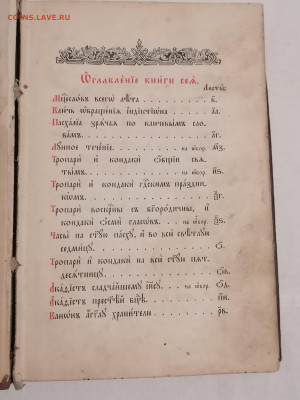 COINS.LAVE.RU
Ѡглавле́нїе кни́ги сеѧ̀.
Листы̀:
Мц҃есло́въ всегѡ̀ лѣ́та
Клю́чь ѡ҆браще́нїѧ і҆ндїктїѡ́на
Пасха́лїа зрѧ́чаѧ по ключевы́мъ сло-
ва́мъ
Лꙋ́нное тече́нїе на ѡбор.
Тропари̑ и҆ кондаки̑ ѻ҆́бщїи свѧ-
ты̑мъ на ѡбор.
Тропари̑ и҆ кондаки̑ гдⷭ҇кимъ пра́здни-
кѡмъ
Тропари̑ воскрⷭ҇ны и҆ бг҃оро́дичны, и҆
кондаки̑ ѻ҆сми́ гласѡ́въ на ѡбор.
Часы̀ на ст҃ꙋ́ю па́схꙋ, и҆ во всю̀ свѣ́тлꙋю
седми́цꙋ
Тропари̑ и҆ кондаки̑ на всю̀ пѧт-
десѧ́тницꙋ
А҆ка́ѳїстъ сладча́йшемꙋ і҆и҃сꙋ на ѡбор.
А҆ка́ѳїстъ прест҃ѣ́й бц҃ѣ
Канѡ́нъ а҆́гг҃лꙋ храни́телю